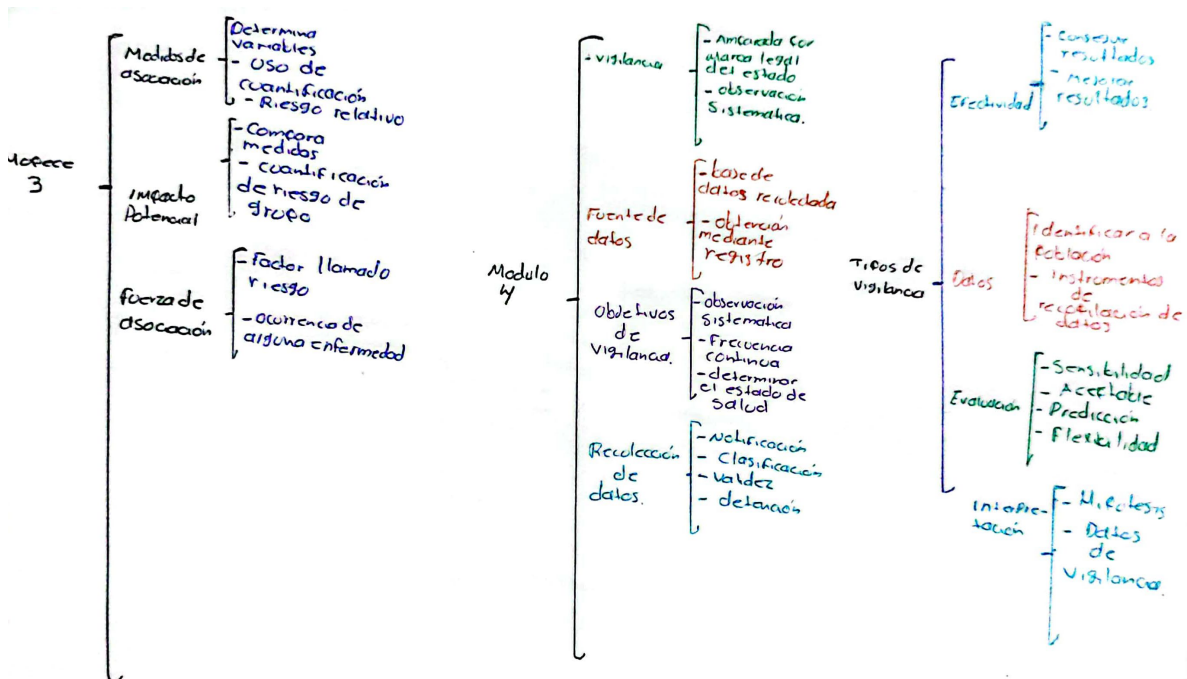 Mopece
3
Medidas de
asocación
Determina
variables
- Uso de
cuantificación
- Riesgo relativo
Impacto
Potencial
- Compara
medidas
- cuantificación
de riesgo de
grupo
fuerza de
asocación
- Factor llamado
riesgo
- ocurrencia de
alguna enfermedad
Modulo
4
- vigilancia
- Amparada por
marco legal
del estado
- observación
sistematica.
Fuente de
datos
- base de
datos recolectada
- obtención
mediante
registro
Objetivos
de
vigilancia.
- observación
sistematica
- Frecuencia
continua
- determinar
el estado de
salud
Recolección
de
datos.
- Notificación
- Clasificación
- Validez
- detención
Tipos de
vigilancia
Efectividad
- Conseguir
resultados
- mejorar
resultados
Datos
Identificar a la
población
- Instrumentos
de
recopilación de
datos
Evaluación
- Sensibilidad
- Aceptable
- Predicción
- Flexibilidad
Interpre-
tación
- Hipotesis
- Datos
de
vigilancia.